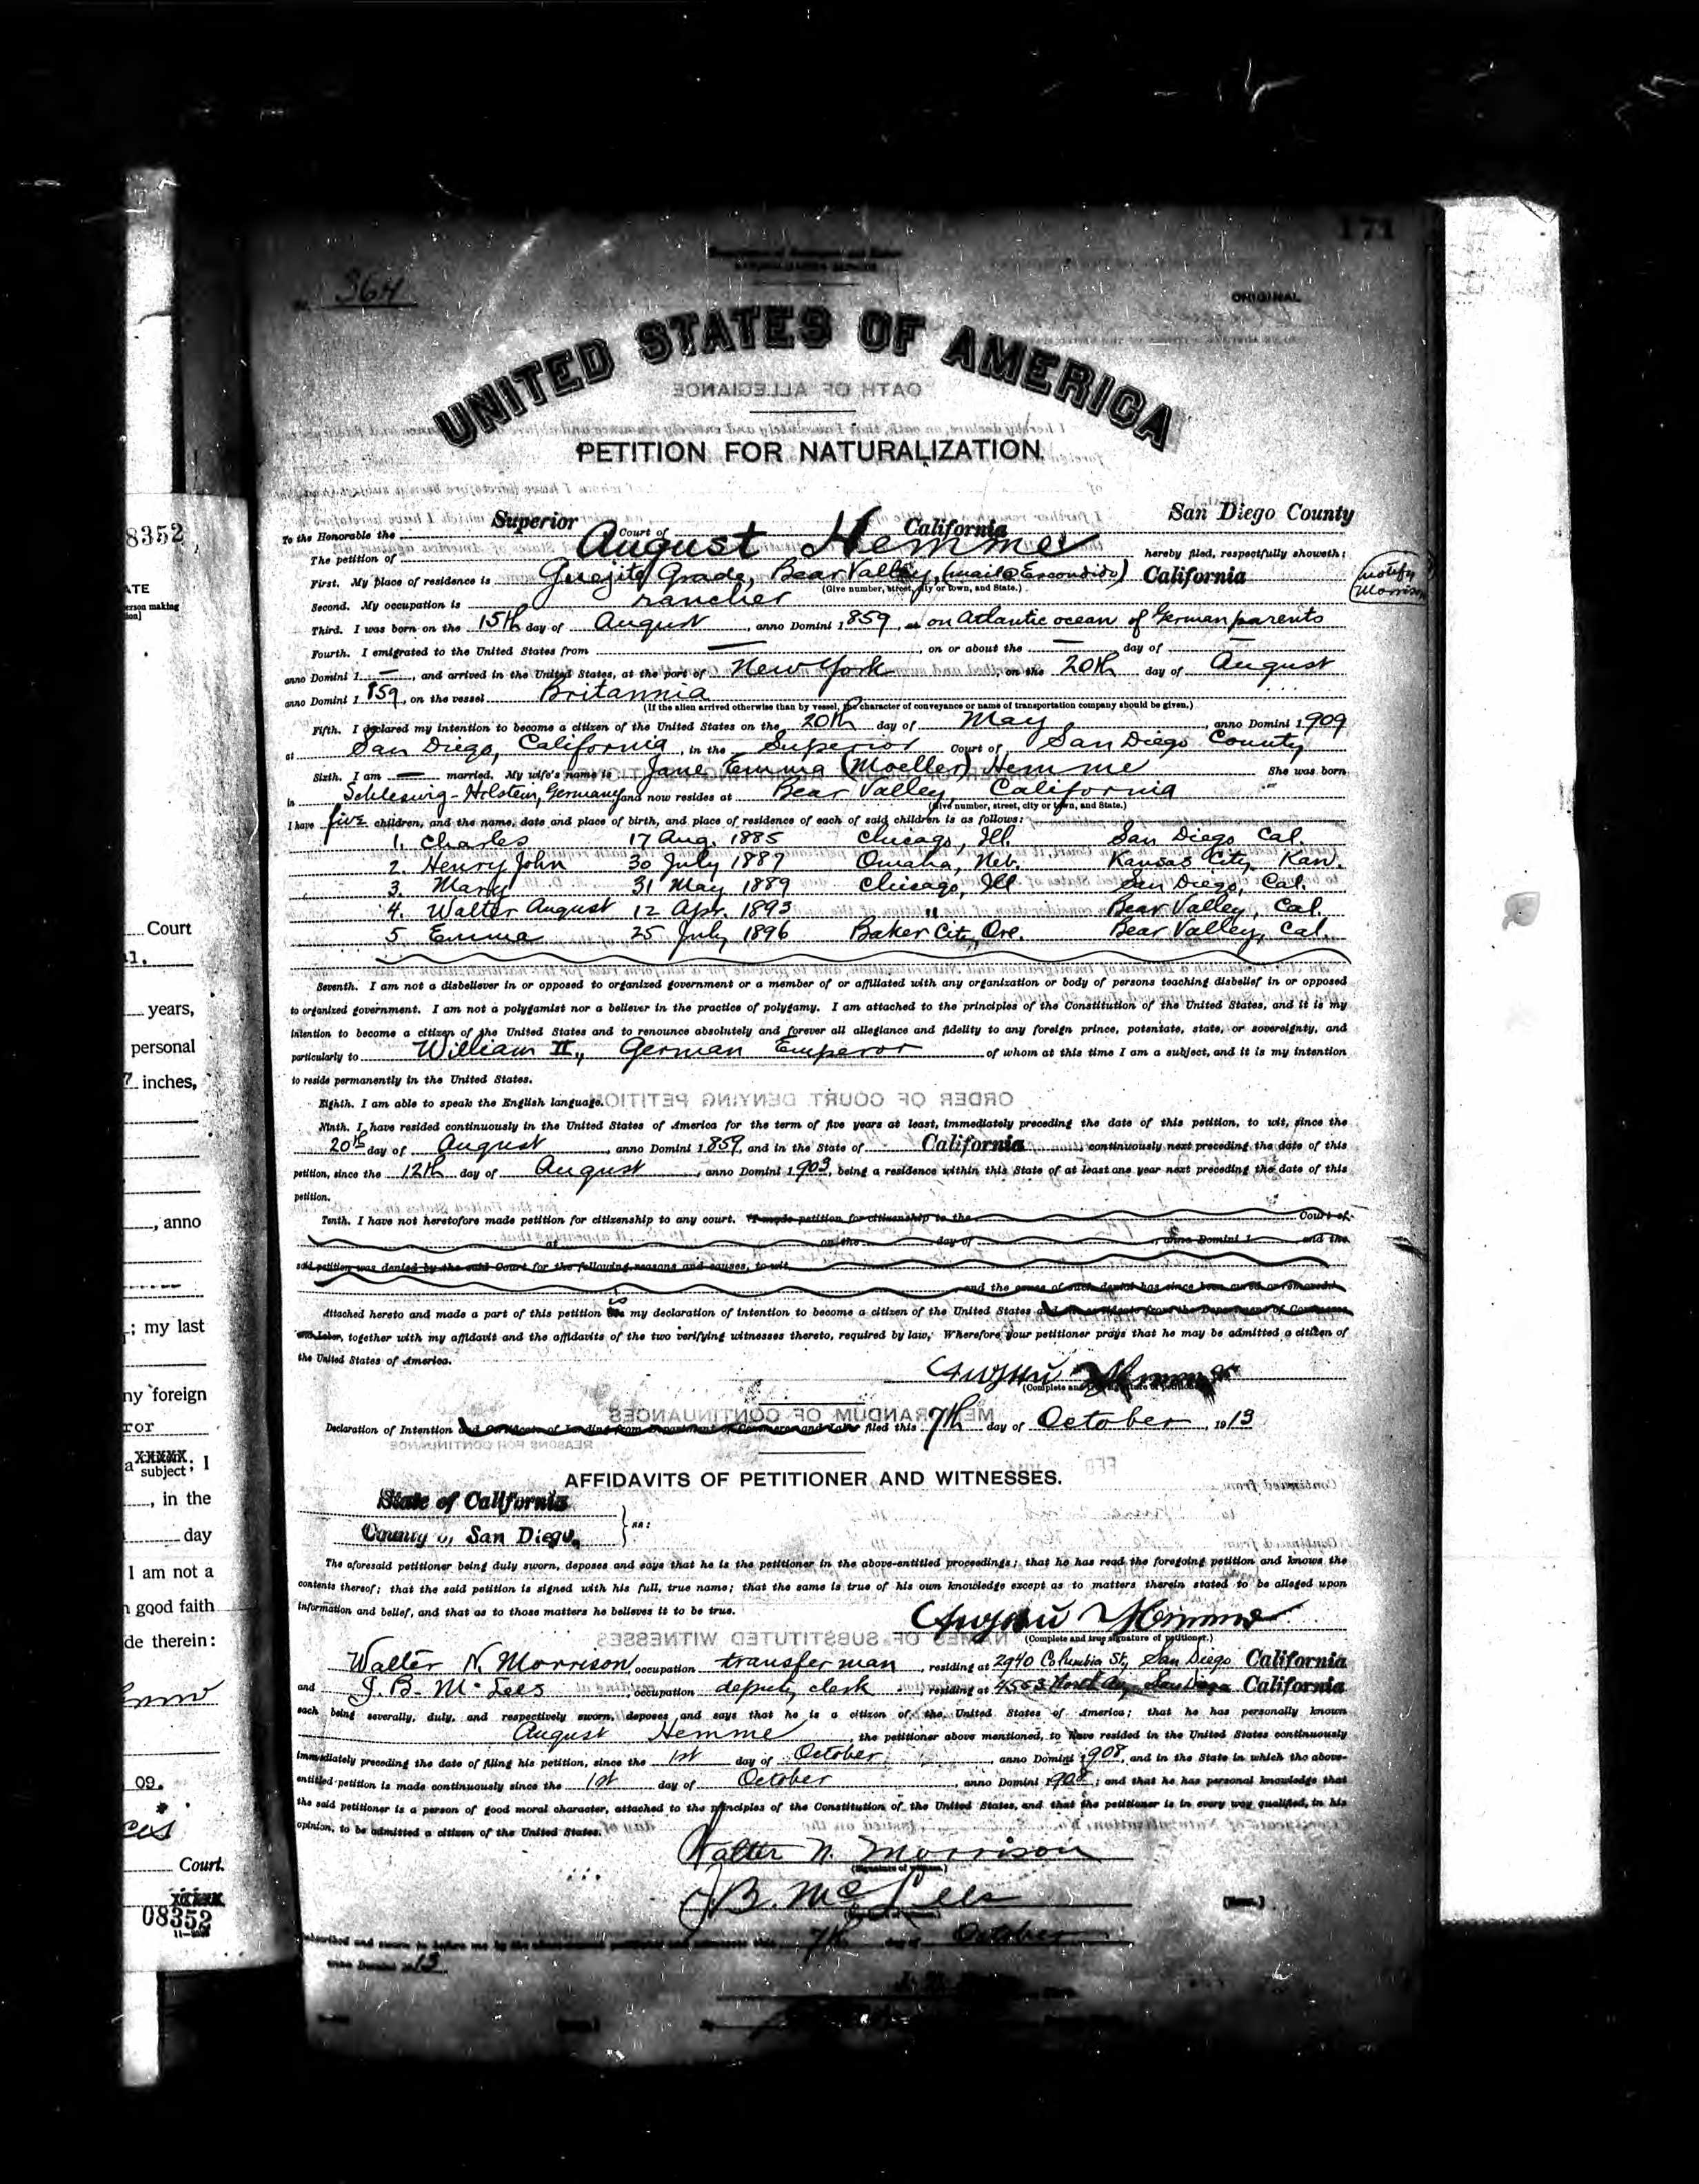 171
364
ORIGINAL
UNITED STATES OF AMERICA
OATH OF ALLEGIANCE
PETITION FOR NATURALIZATION
To the Honorable the Superior Court of California San Diego County
The petition of August Hemme hereby filed, respectfully showeth:
First. My place of residence is Guejito Grade, Bear Valley, (mail @ Escondido) California
(Give number, street, city or town, and State.)
notify Morrison
Second. My occupation is rancher
Third. I was born on the 15th day of August, anno Domini 1859, on Atlantic ocean of German parents
Fourth. I emigrated to the United States from —, on or about the — day of —
anno Domini 1 —, and arrived in the United States, at the port of New York, on the 20th day of August
anno Domini 1859, on the vessel Britannia
(If the alien arrived otherwise than by vessel, the character of conveyance or name of transportation company should be given.)
Fifth. I declared my intention to become a citizen of the United States on the 20th day of May, anno Domini 1909
at San Diego, California, in the Superior Court of San Diego County
Sixth. I am — married. My wife's name is Jane Emma (Moeller) Hemme She was born
in Schleswig-Holstein, Germany and now resides at Bear Valley, California
(Give number, street, city or town, and State.)
I have five children, and the name, date and place of birth, and place of residence of each of said children is as follows:
1. Charles 17 Aug. 1885 Chicago, Ill. San Diego Cal.
2. Henry John 30 July 1887 Omaha, Neb. Kansas City, Kan.
3. Mary 31 May 1889 Chicago, Ill San Diego, Cal.
4. Walter August 12 Apr. 1893 " Bear Valley, Cal.
5 Emma 25 July 1896 Baker City, Ore. Bear Valley, Cal.
Seventh. I am not a disbeliever in or opposed to organized government or a member of or affiliated with any organization or body of persons teaching disbelief in or opposed
to organized government. I am not a polygamist nor a believer in the practice of polygamy. I am attached to the principles of the Constitution of the United States, and it is my
intention to become a citizen of the United States and to renounce absolutely and forever all allegiance and fidelity to any foreign prince, potentate, state, or sovereignty, and
particularly to William II, German Emperor of whom at this time I am a subject, and it is my intention
to reside permanently in the United States.
Eighth. I am able to speak the English language.
ORDER OF COURT DENYING PETITION
Ninth. I have resided continuously in the United States of America for the term of five years at least, immediately preceding the date of this petition, to wit, since the
20th day of August, anno Domini 1859, and in the State of California continuously next preceding the date of this
petition, since the 12th day of August, anno Domini 1903, being a residence within this State of at least one year next preceding the date of this
petition.
Tenth. I have not heretofore made petition for citizenship to any court. I made petition for citizenship to the Court of
at on the day of , anno Domini 1 and the
said petition was denied by the said Court for the following reasons and causes, to wit,
and the cause of such denial has since been cured or removed.
Attached hereto and made a part of this petition is my declaration of intention to become a citizen of the United States and the certificate from the Department of Commerce
and Labor, together with my affidavit and the affidavits of the two verifying witnesses thereto, required by law. Wherefore your petitioner prays that he may be admitted a citizen of
the United States of America.
August Hemme
(Complete and true signature of petitioner.)
MEMORANDUM OF CONTINUANCES
Declaration of Intention and Certificate of Landing from Department of Commerce and Labor filed this 7th day of October, 1913
REASONS FOR CONTINUANCE
AFFIDAVITS OF PETITIONER AND WITNESSES.
State of California
County of San Diego, } ss:
The aforesaid petitioner being duly sworn, deposes and says that he is the petitioner in the above-entitled proceedings; that he has read the foregoing petition and knows the
contents thereof; that the said petition is signed with his full, true name; that the same is true of his own knowledge except as to matters therein stated to be alleged upon
information and belief, and that as to those matters he believes it to be true.
August Hemme
(Complete and true signature of petitioner.)
NAMES OF SUBSTITUTED WITNESSES
Walter N. Morrison, occupation transferman, residing at 2940 Columbia St, San Diego California
and J. B. McLees, occupation deputy clerk, residing at San Diego California
each being severally, duly, and respectively sworn, deposes and says that he is a citizen of the United States of America; that he has personally known
August Hemme the petitioner above mentioned, to have resided in the United States continuously
immediately preceding the date of filing his petition, since the 1st day of October, anno Domini 1908, and in the State in which the above-
entitled petition is made continuously since the 1st day of October, anno Domini 1908; and that he has personal knowledge that
the said petitioner is a person of good moral character, attached to the principles of the Constitution of the United States, and that the petitioner is in every way qualified, in his
opinion, to be admitted a citizen of the United States.
Walter N. Morrison
(Signature of witness.)
J B. McLees
Subscribed and sworn to before me by the 7th day of October
anno Domini 1913
8352
ATE
Court
years,
personal
7 inches,
, anno
; my last
ny foreign
ror
a XXXXX subject; I
, in the
day
I am not a
good faith
de therein:
09.
Court.
XXXXX
08352